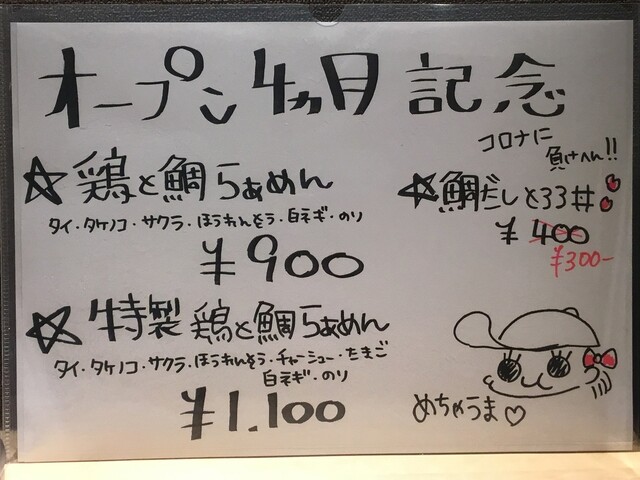 オープン4ヵ月記念
コロナに
負けへん!!
☆鶏と鯛らぁめん
タイ・タケノコ・サクラ・ほうれんそう・白ネギ・のり
¥900
☆鯛だしと33丼
¥400
¥300-
☆特製鶏と鯛らぁめん
タイ・タケノコ・サクラ・ほうれんそう・チャーシュー・たまご
白ネギ・のり
¥1.100
めちゃうま♡